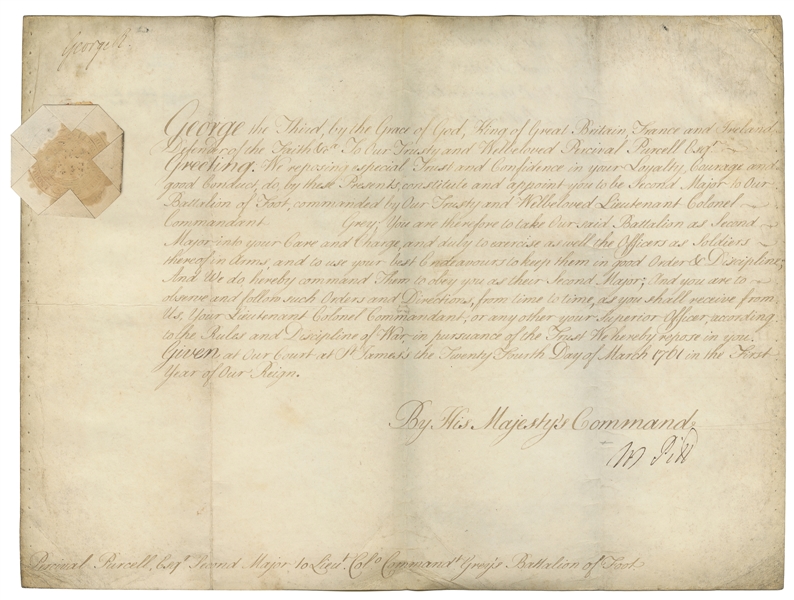 George R.
George the Third, by the Grace of God, King of Great Britain, France and Ireland
Defender of the Faith &ca. To Our Trusty and Welbeloved Percival Purcell Esqr.
Greeting. We reposing especial Trust and Confidence in your Loyalty, Courage and
good Conduct, do, by these Presents, constitute and appoint you to be Second Major to Our
Battalion of Foot, commanded by Our Trusty and Welbeloved Lieutenant Colonel
Commandant Grey; You are therefore to take Our said Battalion as Second
Major into your Care and Charge, and duly to exercise as well the Officers as Soldiers
thereof in Arms, and to use your best Endeavours to keep them in good Order & Discipline;
And We do hereby command Them to obey you as their Second Major; And you are to
observe and follow such Orders and Directions, from time to time, as you shall receive from
Us, Your Lieutenant Colonel Commandant, or any other your Superior Officer, according
to the Rules and Discipline of War, in pursuance of the Trust We hereby repose in you.
Given at Our Court at St. James's the Twenty Fourth Day of March 1761 in the First
Year of Our Reign.
By His Majesty's Command,
W Pitt
Percival Purcell, Esqr. Second Major to Lieut. Colo. Commandt. Grey's Battalion of Foot.